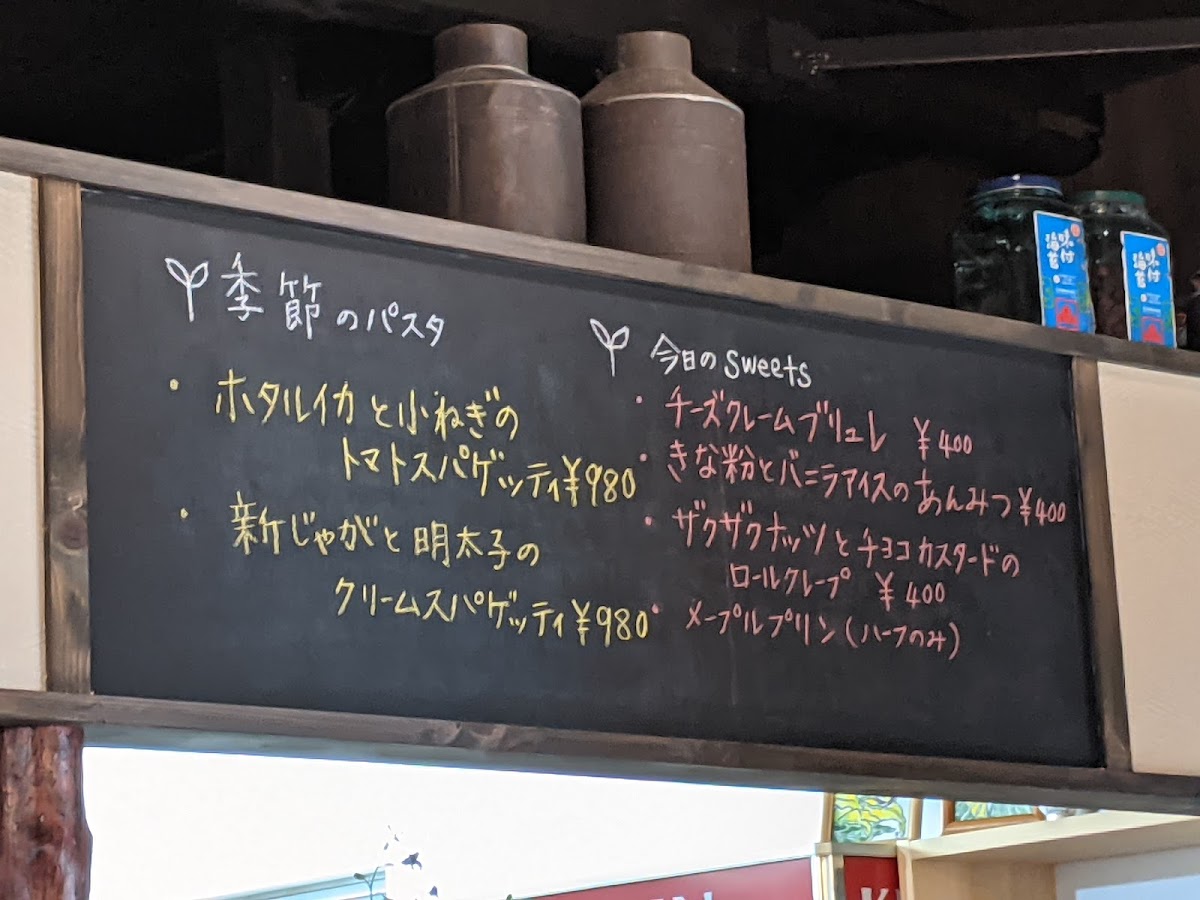 季節のパスタ
・ホタルイカと小ねぎの
トマトスパゲッティ¥980
・新じゃがと明太子の
クリームスパゲッティ¥980
今日のsweets
・チーズクレームブリュレ ¥400
・きな粉とバニラアイスのあんみつ¥400
・ザクザクナッツとチョコカスタードの
ロールクレープ ¥400
・メープルプリン(ハーフのみ)
味付
海苔
味付
海苔